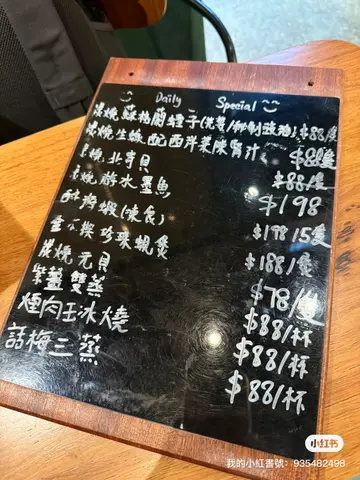 Daily Special
炭燒蘇格蘭蟶子(汁/秘制豉油) $88/隻
炭燒生蠔配西洋菜陳腎汁 $88/隻
燒北寄貝 $88/隻
燒醉水墨魚 $198
蝦(凍食) $198/5隻
珍珠蜆煲 $188/隻
炭燒元貝 $78/隻
紫薑雙蒸 $88/杯
煙肉玉冰燒 $88/杯
話梅三蒸 $88/杯
小红书
我的小紅書號：935482498